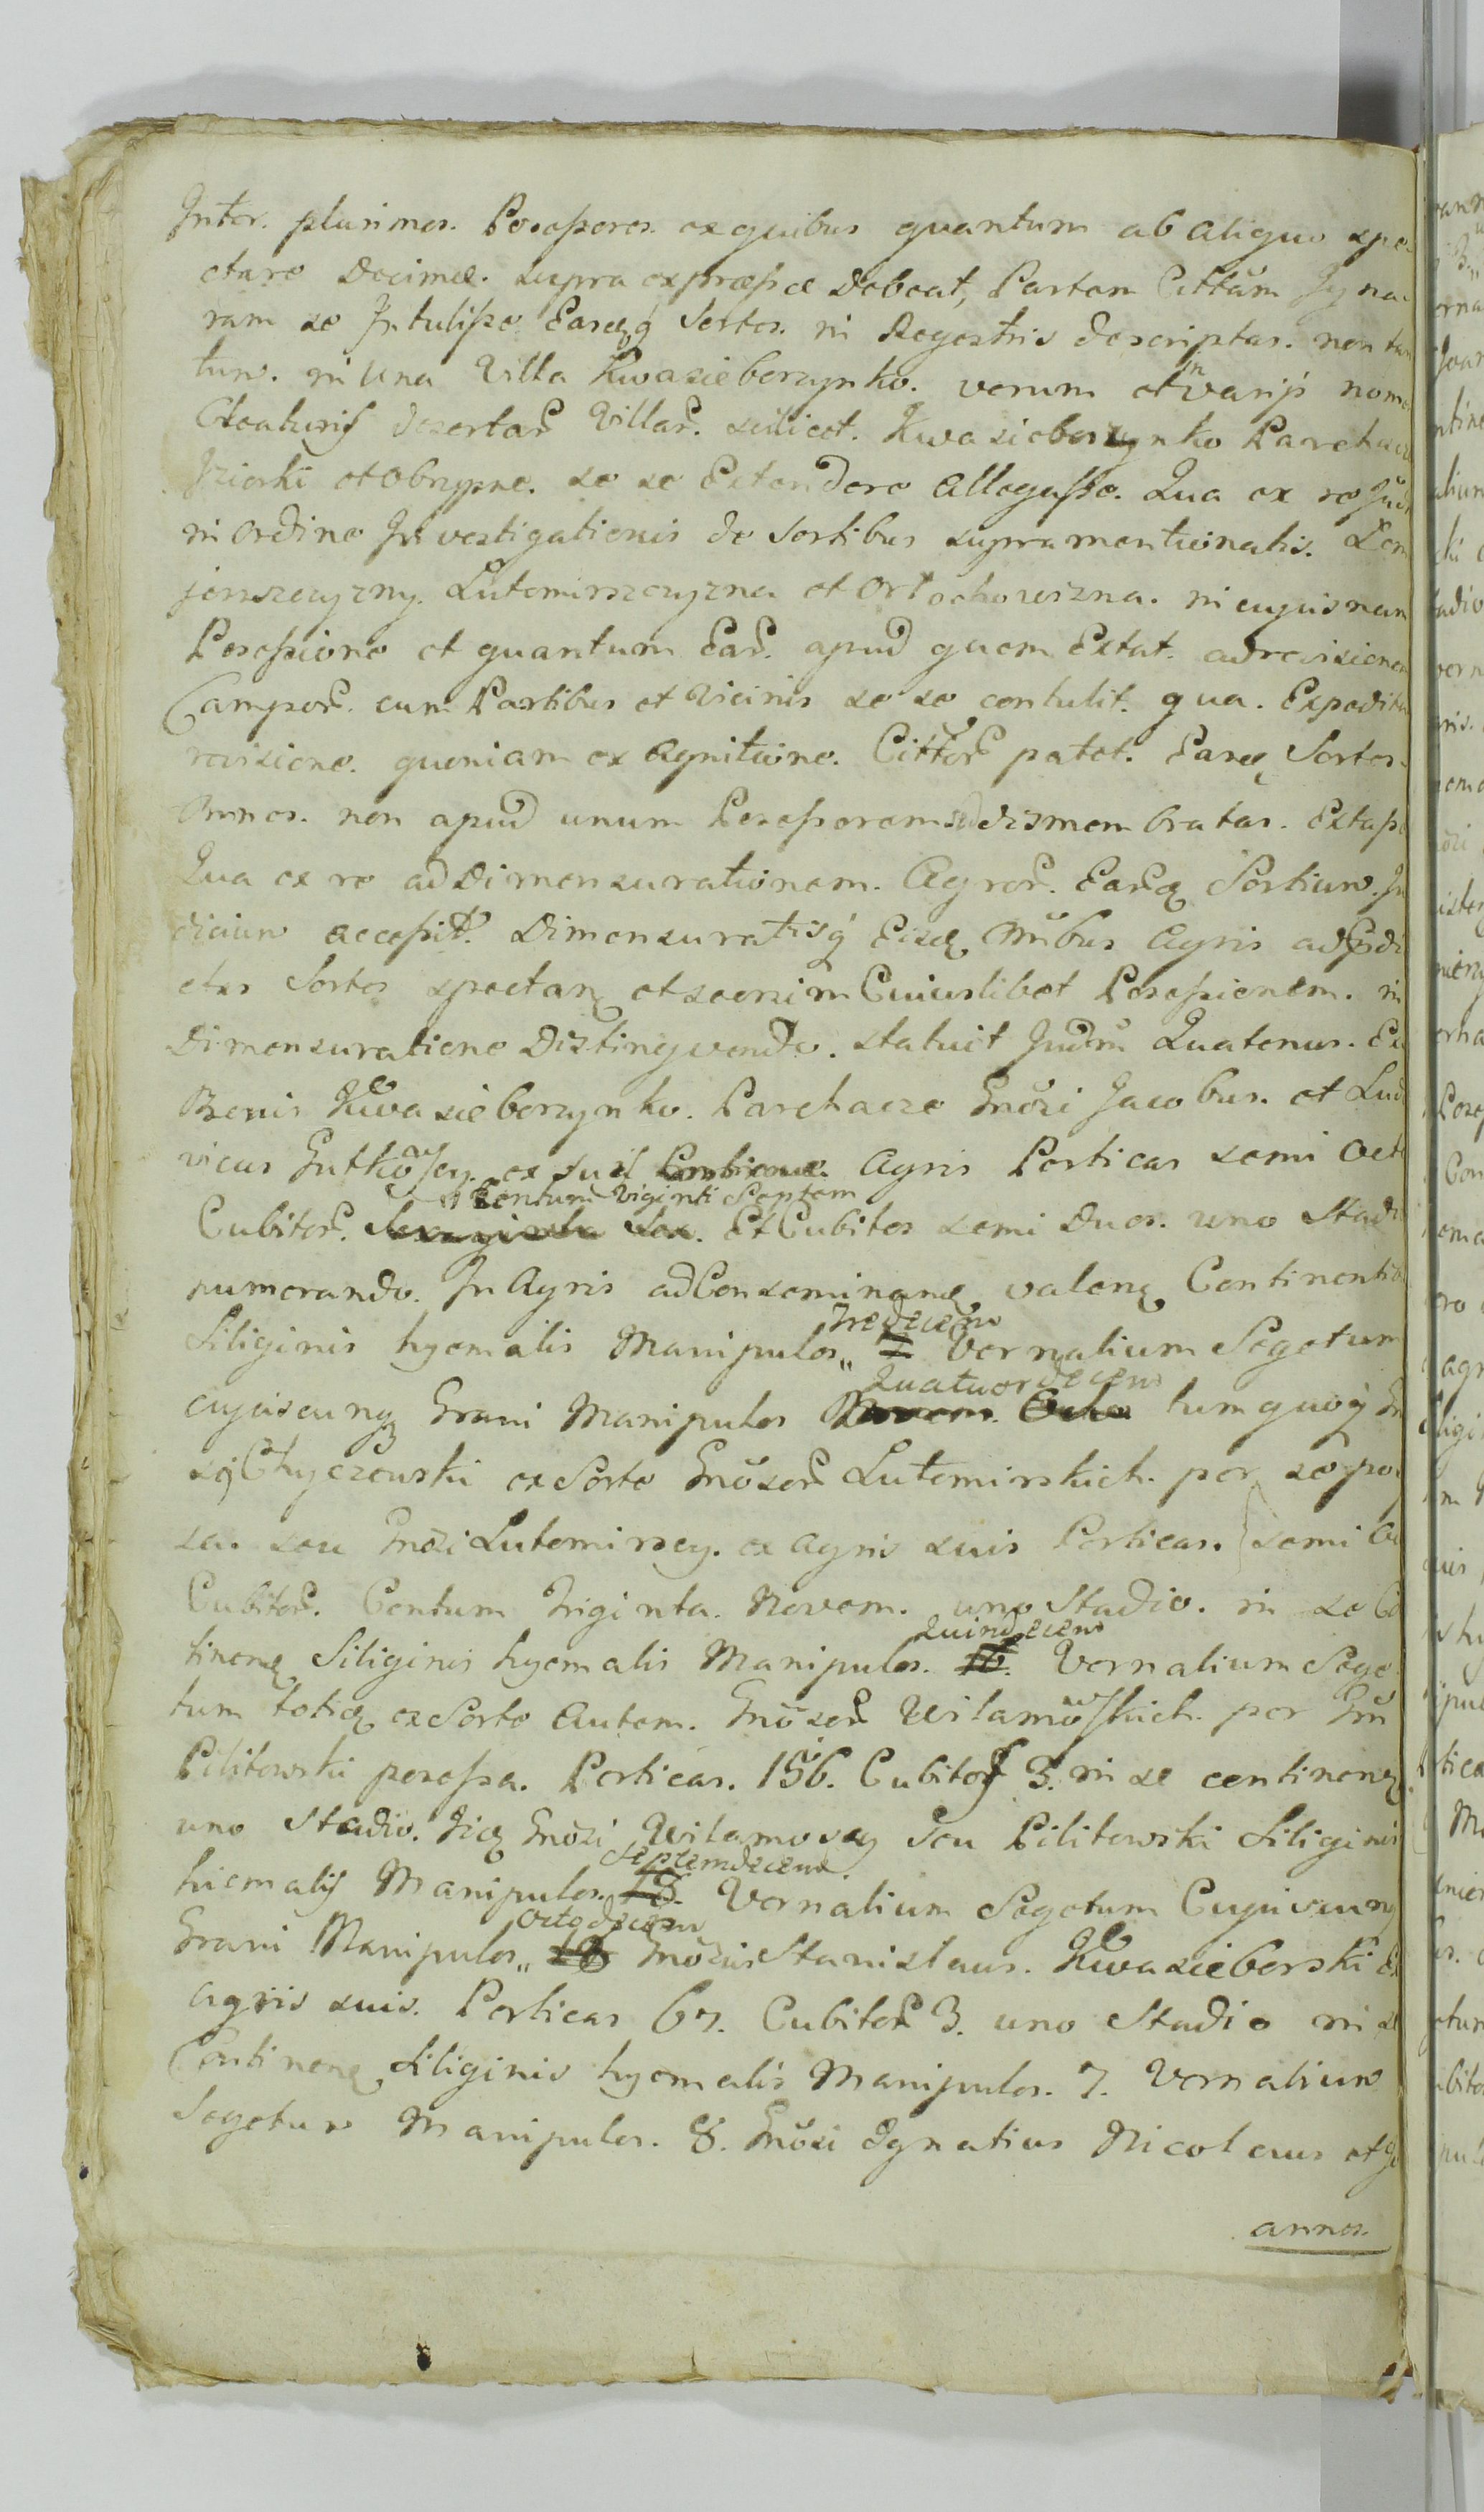 Inter. plurimos. Possessores. ex quibus quantum ab aliquo spe
ctare Decimæ. supra expressæ debeat, Partem Cittam Igna
ram se Intulisse Easdeq́ Sortes. in Regestris descriptas. non tan
tum. in una Villa Kwasieborzynko. verum et in varijs nomen
claturis desertar Villar. scilicet. Kwasieborzynko Parchacze
Izierki et Obrypne. se se Extendere allegasse. Qua ex re Jud
in ordine Investigationis de Sortibus supramentionatis.
jenszczyzny. Lutomirszczyzna et Ortochowizna. in cujusnam
Possessione et quantum Ear. apud quem Extat. ad revisionem
Campor. cum Partibus et Vicinis se se contulit. qua. Expedita
revisione. quoniam ex agnitione. Cittor patet. Easd Sortes.
Omnes. non apud unum Possessorem sed dismembratas. Extasse
Qua ex re ad Dimensurationem. Agror. Eard Sortium. Ju
dicium accessit. Dimensuratisq́ Eisd oñibus Agris ad pdi
ctas Sortes spectan et Cuiuslibet Possessionem. in
Dimensuratione Distingvendo. statuit Judm Quatenus. Ex
Bonis Kwasieborzynko. Parchacze Gnosi Jacobus. et Ludo
vicus Gutkowscy. ex suis Agris Perticas semi Octo
Centum Viginti Septem
Cubitor. Sexaginta Sex. Et Cubitos semi Duos. uno Stadio
numerando. In Agris ad Conseminand valen Continentib
Tredecem
Siliginis hyemalis Manipulos,, 7 Vernalium Segetum
Quatuordecem
cujuscunq Grani Manipulos Novem. Octo tum quoq́ Gn
sq Chyczewski ex Sorte Gnosor Lutomirskich. per se pos
sa. seu Gnosi Lutomirscy. ex Agris suis Perticas. semi Oc
Cubitor. Centum Triginta. Novem. uno Stadio. in se Co
quindecem
tinen Siliginis hyemalis Manipulos. 16. Vernalium Sege
tum totid ex Sorte Autem. Gnosor Wilamowskich. per Gñ
Pilitowski possessa. Perticas. 156. Cubitos 3. in se continen
uno Stadio. Gnosi Wilamowscy Seu Pilitowski Siliginis
Septemdecem.
hiemalis Manipulos. 18. Vernalium Segetum Cujuscunq
Octodecem
Grani Manipulos,, 18 Gnosus Stanislaus. Kwasieborski Ex
agris suis. Perticas 67. Cubitor 3. uno Stadio in se
Continen Siliginis hyemalis Manipulos. 7. Vernalium
Segetum Manipulos. 8. Gnosi Ignatius Nicolaus et Jo
annes.